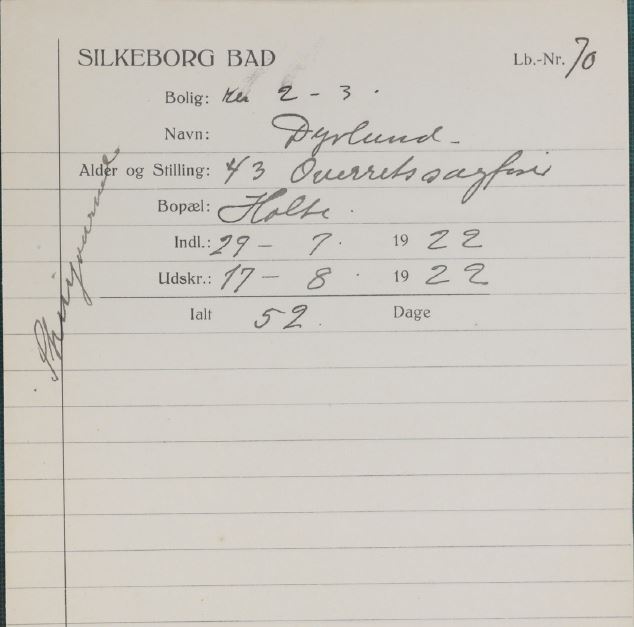 SILKEBORG BAD
Lb.-Nr. 70
Bolig: 2 - 3.
Navn: Dyrlund -
Alder og Stilling: 43 Overretssagfører
Bopæl: Holte.
Indl.: 29 - 7. 19 22
Udskr.: 17 - 8. 19 22
Ialt 52. Dage